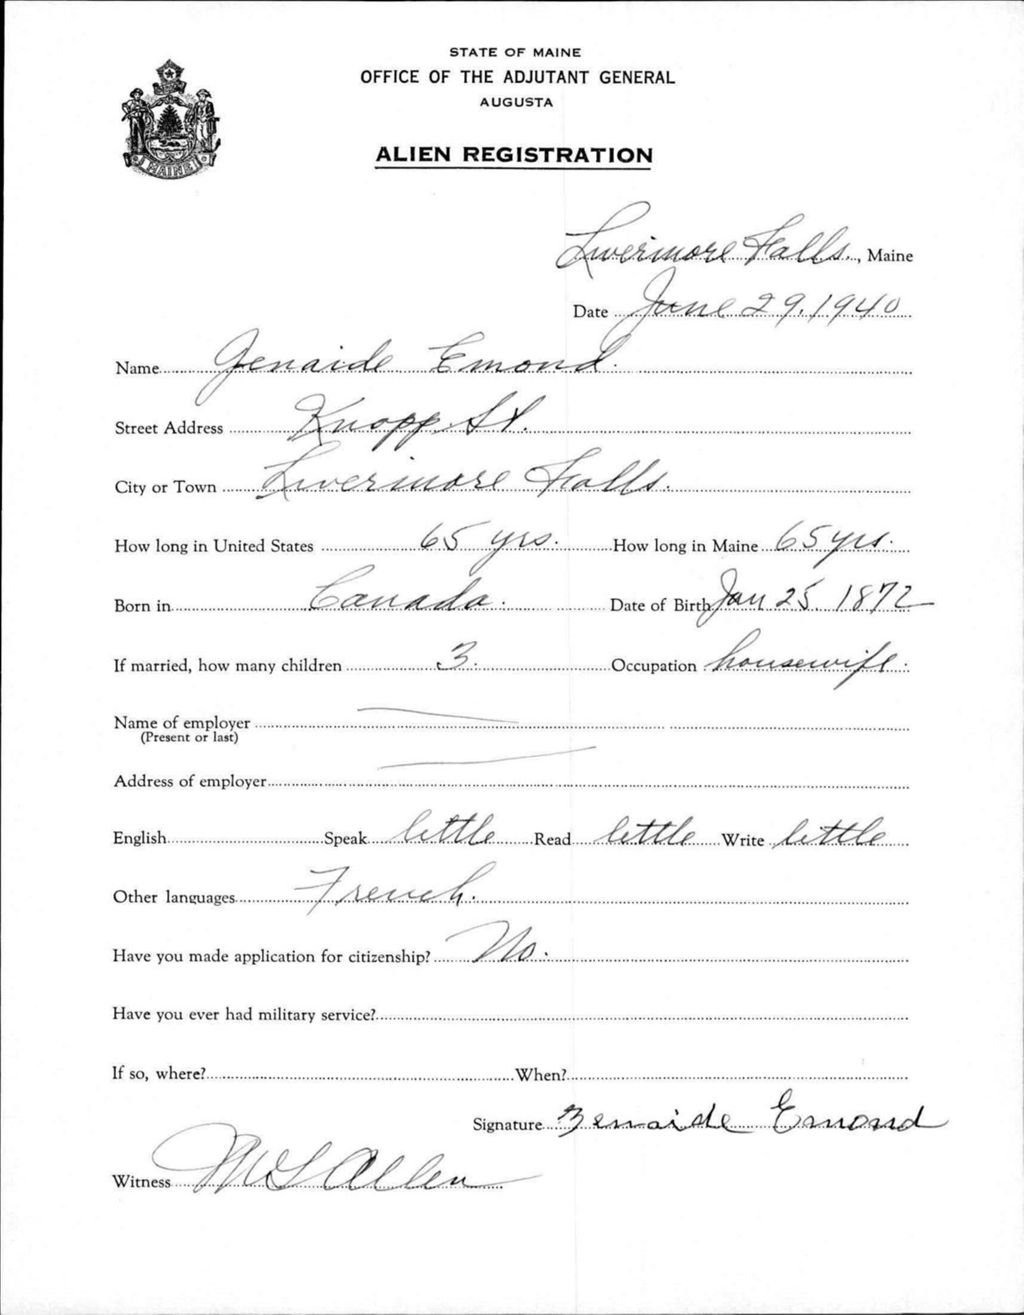 STATE OF MAINE
OFFICE OF THE ADJUTANT GENERAL
AUGUSTA
ALIEN REGISTRATION
MAINE
Livermore Falls, Maine
Date June 29, 1940
Name Zenaide Emond.
Street Address Knapp St.
City or Town Livermore Falls.
How long in United States 65 yrs. How long in Maine 65 yrs.
Born in Canada. Date of Birth Jan 25, 1872
If married, how many children 3. Occupation housewife.
Name of employer
(Present or last)
Address of employer
English Speak little Read little Write little
Other languages French.
Have you made application for citizenship? No.
Have you ever had military service?
If so, where? When?
Signature Zenaide Emond
Witness M L Allen